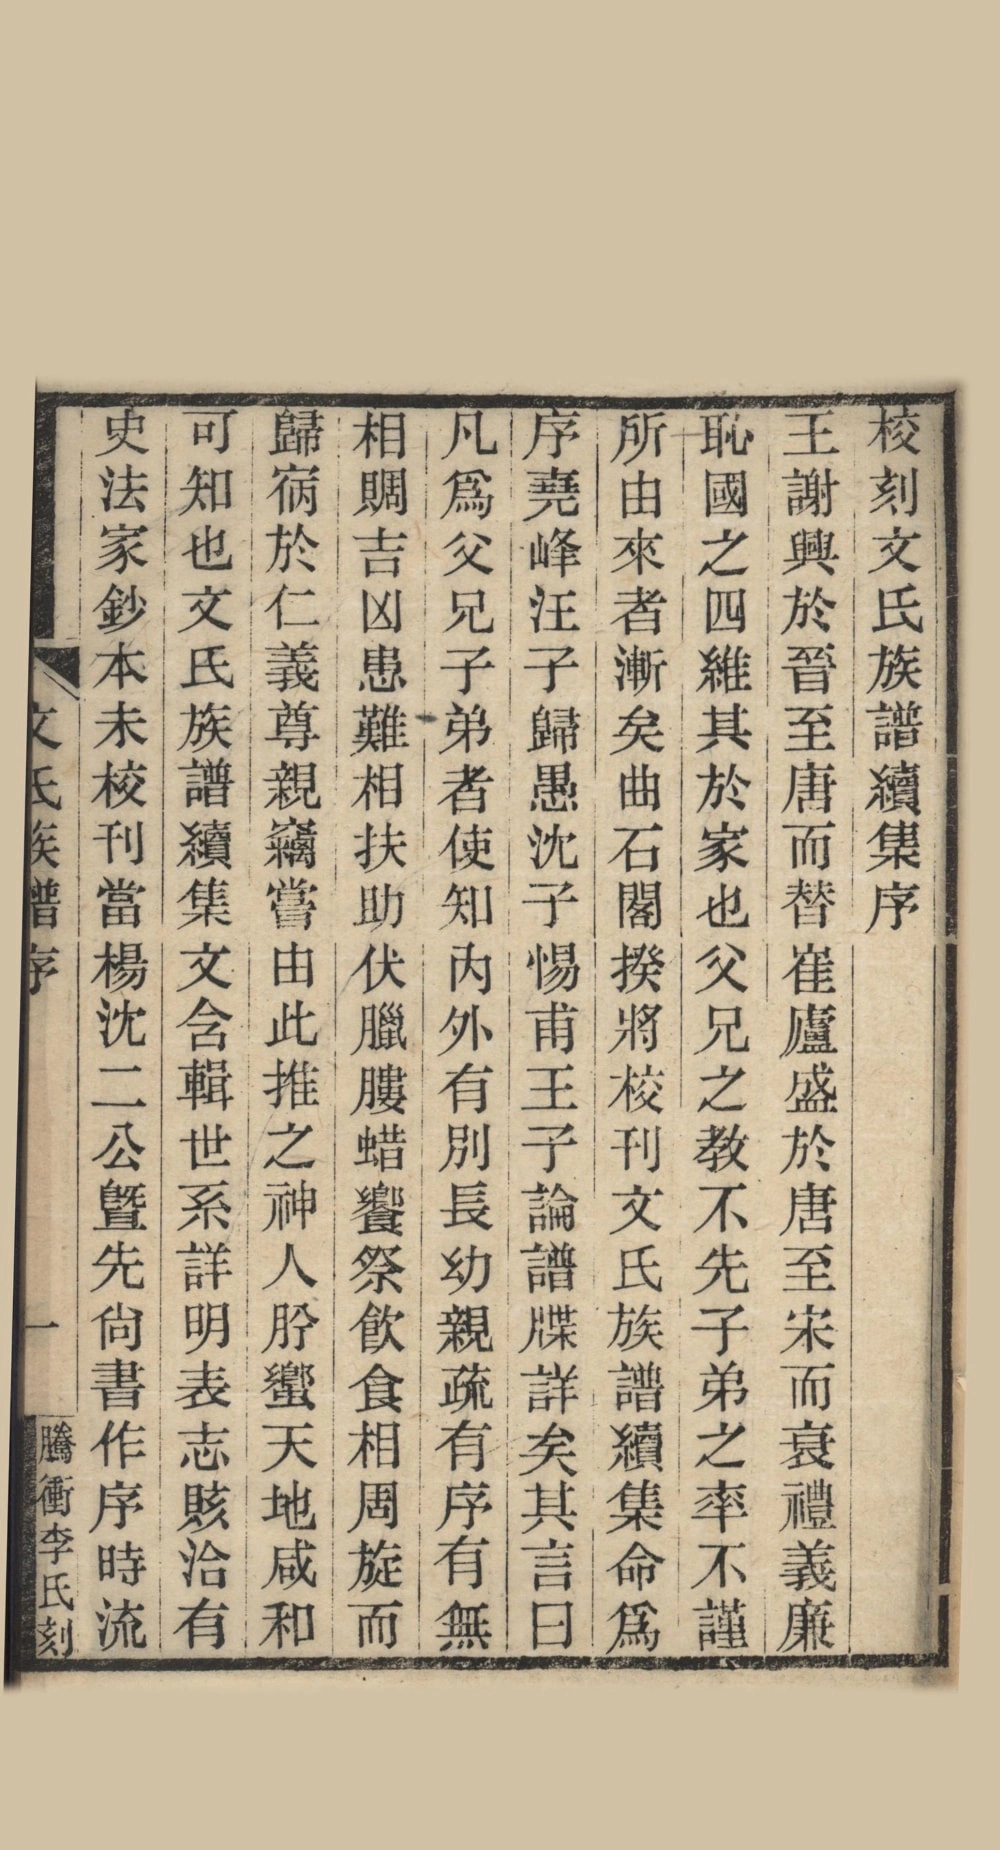 校刻文氏族譜續集序
王謝興於晉至唐而替崔廬盛於唐至宋而衰禮義廉
恥國之四維其於家也父兄之教不先子弟之率不謹
所由來者漸矣曲石閣揆將校刊文氏族譜續集命爲
序堯峰汪子歸愚沈子惕甫王子論譜牒詳矣其言曰
凡爲父兄子弟者使知內外有別長幼親疏有序有無
相賙吉凶患難相扶助伏臘膢蜡饗祭飲食相周旋而
歸宿於仁義尊親竊嘗由此推之神人肸蠁天地咸和
可知也文氏族譜續集文含輯世系詳明表志賅洽有
史法家鈔本未校刊當楊沈二公暨先尙書作序時流
文氏族譜序
一
騰衝李氏刻